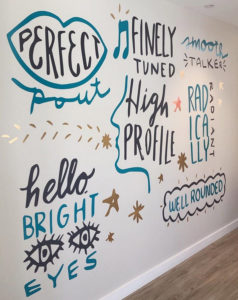 PERFECT
pout
FINELY
TUNED
smooth
TALKER
High
PROFILE
RAD
ICA
LLY
RADIANT
hello
BRIGHT
EYES
WELL ROUNDED